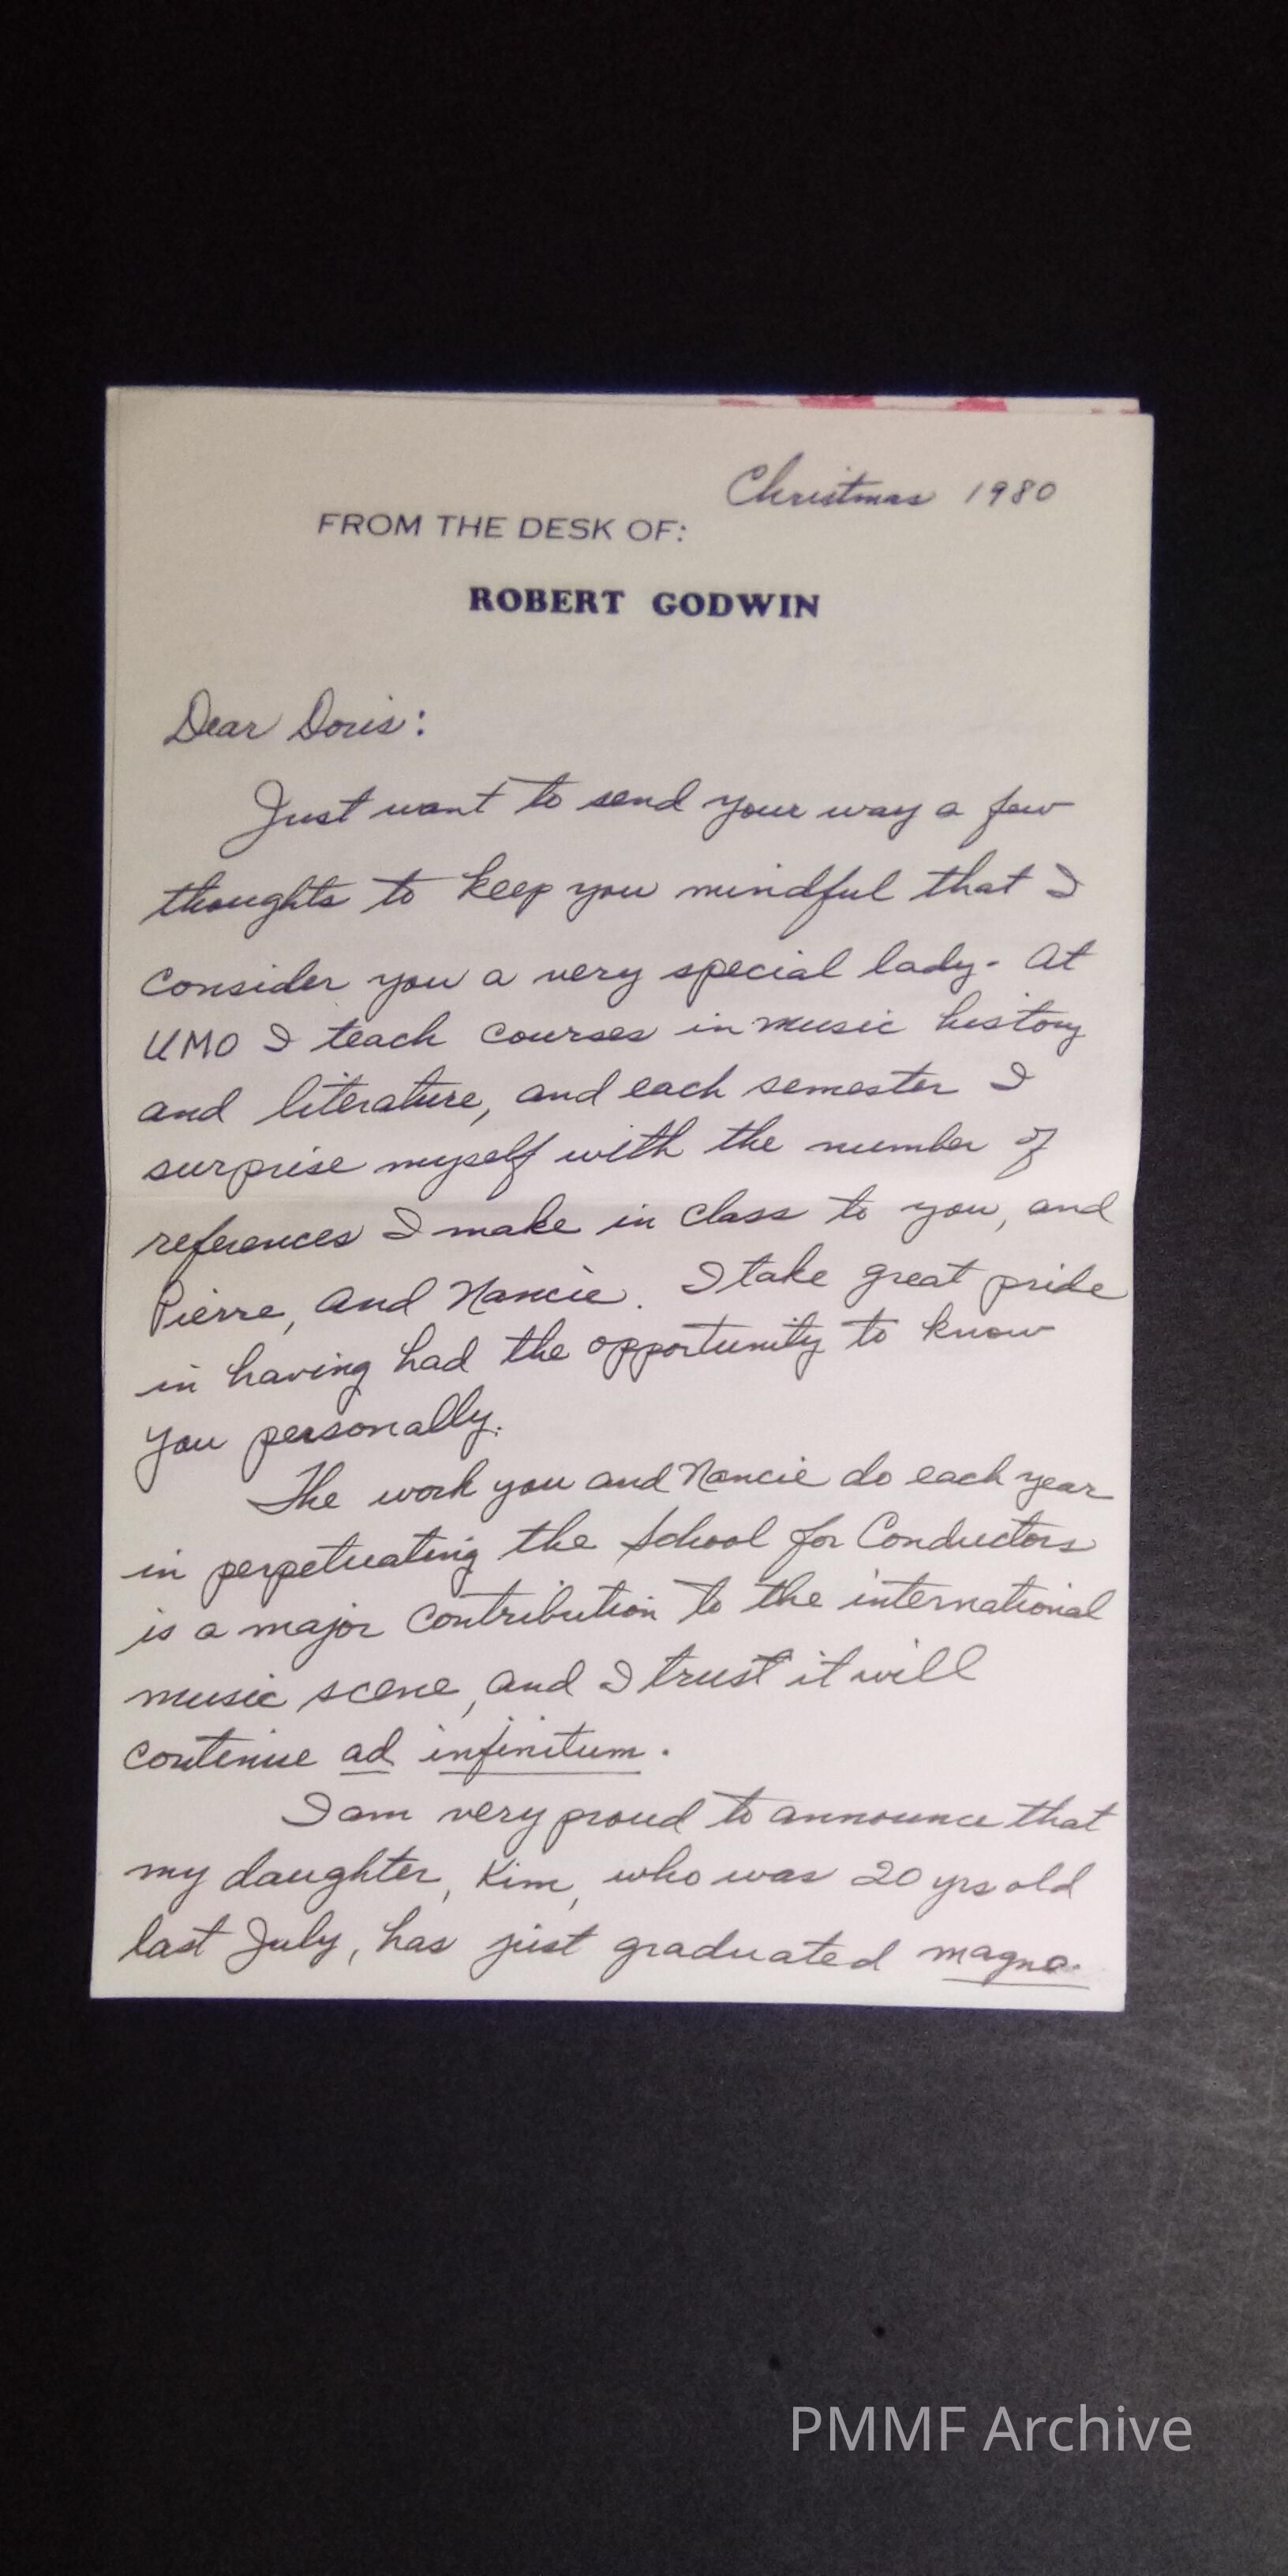 Christmas 1980
FROM THE DESK OF:
ROBERT GODWIN
Dear Doris:
Just want to send your way a few
thoughts to keep you mindful that I
consider you a very special lady. At
UMO I teach courses in music history
and literature, and each semester I
surprise myself with the number of
references I make in class to you, and
Pierre, and Nancie. I take great pride
in having had the opportunity to know
you personally.
The work you and Nancie do each year
in perpetuating the School for Conductors
is a major contribution to the international
music scene, and I trust it will
continue ad infinitum.
I am very proud to announce that
my daughter, Kim, who was 20 yrs old
last July, has just graduated magna
PMMF Archive